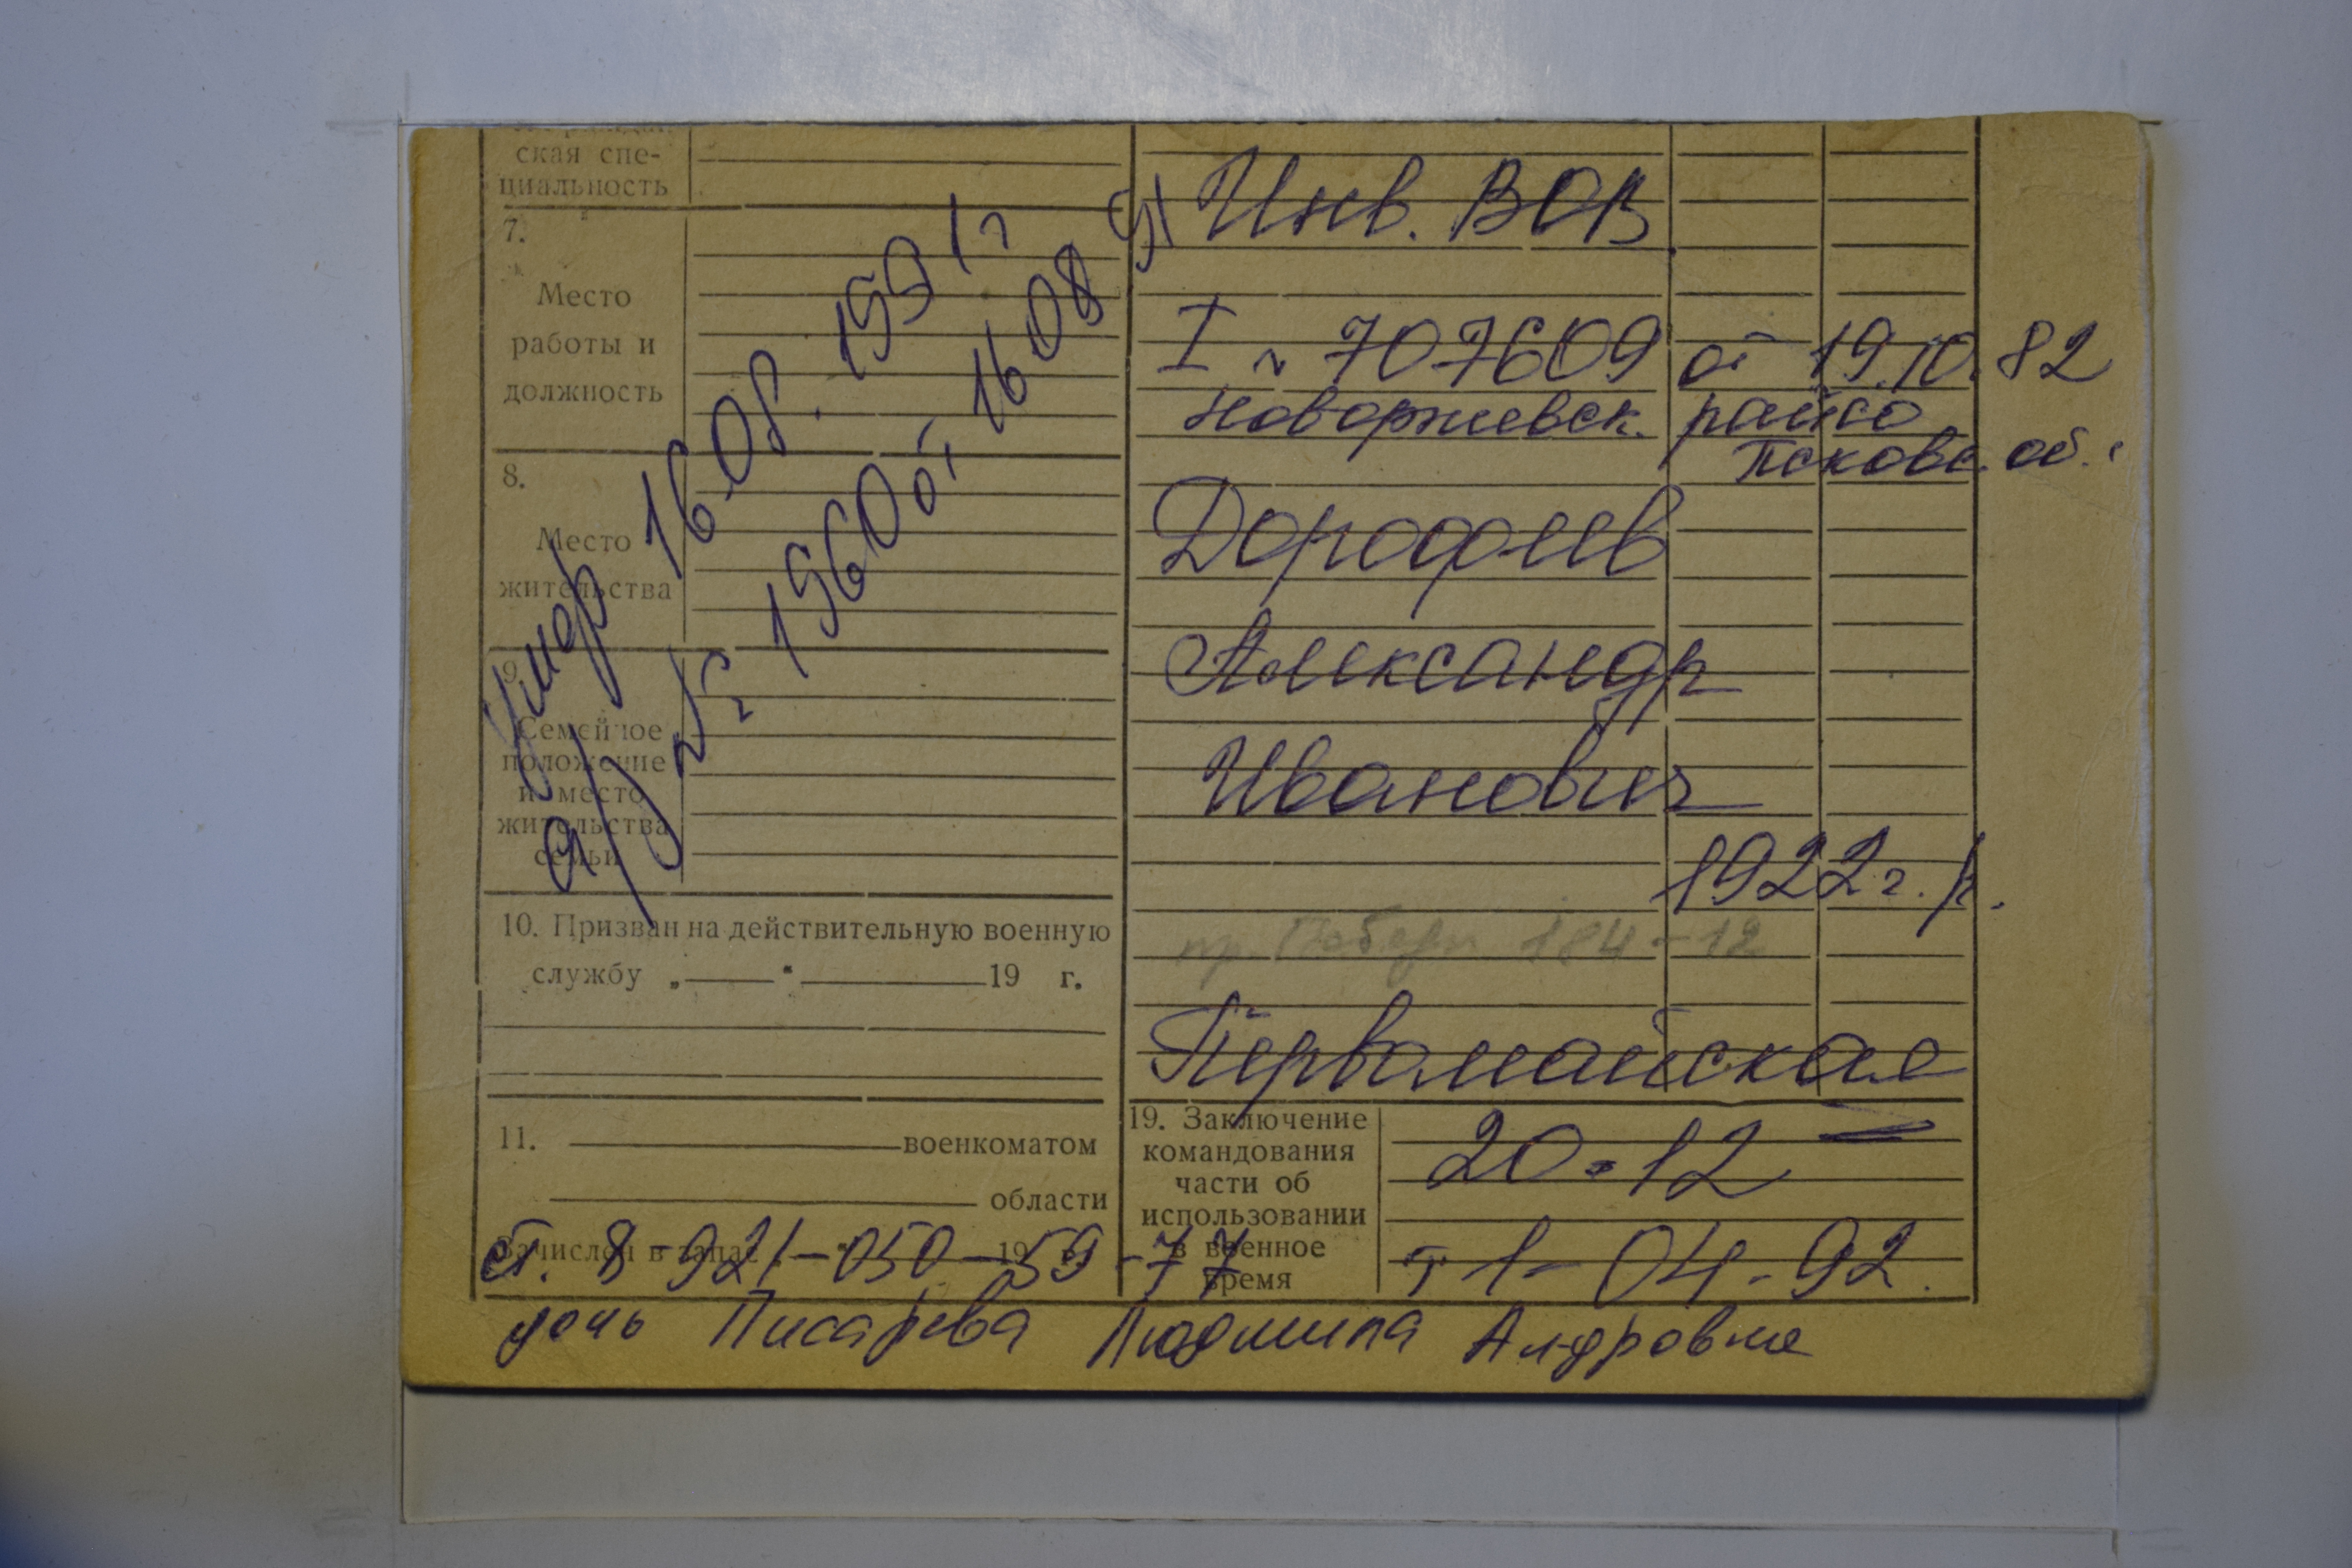 ская спе-
циальность
7.
Место
работы и
должность
8.
Место
жительства
9.
Семейное
положение
и место
жительства
семьи
10. Призван на действительную военную
службу „ “ 19 г.
11. военкоматом
области
Зачислен в запас 19
Умер 16.08. 1991г
а/з № 1960 от 16 08 91
Инв. ВОВ
I № 707609 от 19.10.82
Новоржевск. райсо
Псковс. об.
Дорофеев
Александр
Иванович
1922 г. р.
пр. Победы 184-12
Первомайская
19. Заключение
командования
части об
использовании
в военное
время
20-12
т 1-04-92.
ст. 8-921-050-59-77
дочь Писарева Людмила Ал-дровна